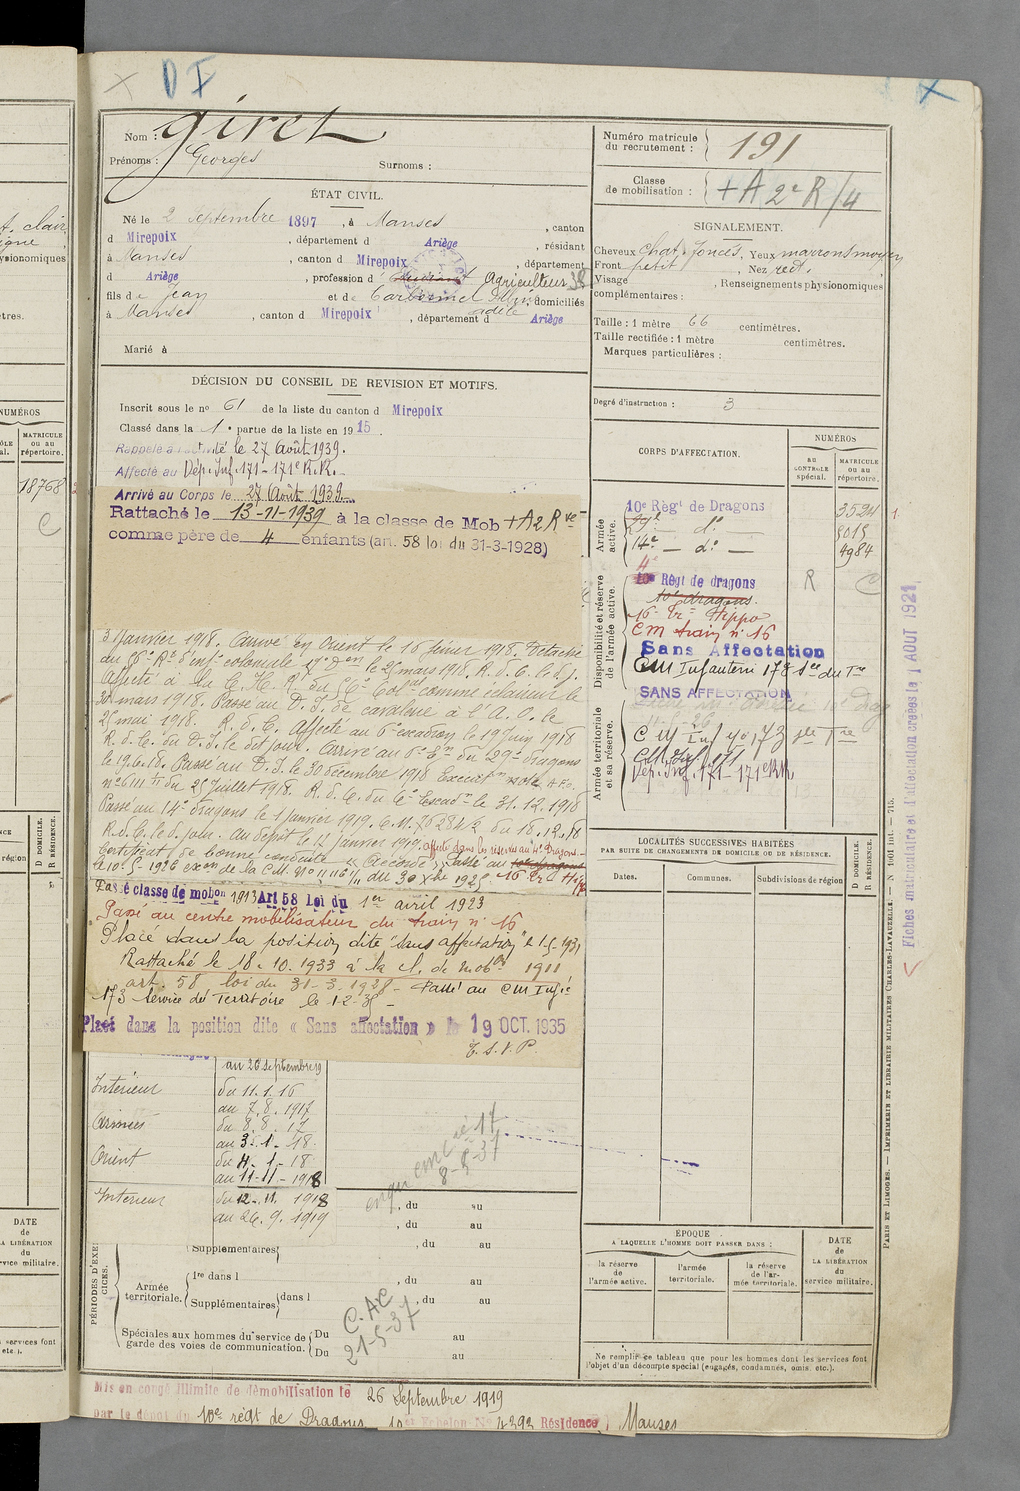 D I
Nom : Giret
Prénoms : Georges
Surnoms :
Numéro matricule
du recrutement : 191
Classe
de mobilisation : +A 2e R/4
ÉTAT CIVIL.
Né le 2 septembre 1897, à Manses, canton
d Mirepoix, département d Ariège, résidant
à Manses, canton d Mirepoix, département
d Ariège, profession d Agriculteur 38
fils de Jean et de domiciliés
à Manses, canton d Mirepoix, département d Ariège
Marié à
SIGNALEMENT.
Cheveux chat. foncés, Yeux marrons moyen
Front petit, Nez rect.
Visage , Renseignements physionomiques
complémentaires :
Taille : 1 mètre 66 centimètres.
Taille rectifiée : 1 mètre centimètres.
Marques particulières :
Degré d'instruction : 3
DÉCISION DU CONSEIL DE REVISION ET MOTIFS.
Inscrit sous le no 61 de la liste du canton d Mirepoix
Classé dans la 1e partie de la liste en 1915.
Rappelé à l'activité le 27 Août 1939.
Affecté au Dép. Inf. 171 - 171e R.R.
Arrivé au Corps le 27 Août 1939
Rattaché le 13-11-1939 à la classe de Mob +A2Rve
comme père de 4 enfants (art. 58 loi du 31-3-1928)
3 Janvier 1918. Arrivé en Orient le 16 février 1918. Détaché
au Rt d'Inf. coloniale le 25 mars 1918. R.d.C. le d.j.
Affecté à la C.H.R. du Col comme éclaireur le
30 mars 1918. Passé au D.I. de cavalerie à l'A.O. le
2 mai 1918. R.d.C. Affecté au 6e escadron le 19 Juin 1918
R.d.C. du D.I. le dit jour. Arrivé au 29e dragons
le 19.6.18. Passé au D.I. le 30 décembre 1918
no 6111 du 25 Juillet 1918. R.d.C. du 6e Escadn le 31.12.1918
Passé au 14e dragons le 1 Janvier 1919. C.M. 7628 4/2 du 18.12.18
R.d.C. le d. jour. Au dépôt le 12 Janvier 1919. affecté dans les réserves au 4e Dragons.
Certificat de bonne conduite "Accordé". Passé au 10e dragons
le 10-5-1926 du 30 Xbre 1925. 16e
Passé classe de mobon 1913 Art 58 Loi du 1er avril 1923
Passé au centre mobilisateur du train no 16
Placé dans la position dite "Sans affectation" le 1-5-1931
Rattaché le 18.10.1933 à la cl. de mobon 1911
art. 58 loi du 31-3-1928 - Passé au CM Infie
173 Service du Territoire le 1-2-35 -
Placé dans la position dite « Sans affectation » le 19 OCT. 1935
T.S.V.P.
au 26 septembre 19
Intérieur du 11.1.16
au 7.8.1917
Armées du 8.8.17
au 3.1.18.
Orient du 4.1.18
au 11-11-1918
Intérieur du 12.11.1918
au 26.9.1919
8-5-37
, du au
, du au
Supplémentaires , du au
PÉRIODES D'EXERCICES.
Armée
territoriale.
1re dans l , du au
Supplémentaires dans l , du au
C.AC
21-5-37
Spéciales aux hommes du service de
garde des voies de communication.
Du au
Du au
Mis en congé illimité de démobilisation le 26 Septembre 1919
par le dépôt du 10e régt de Dragons 10e Echelon No 4393 Résidence, Manses
CORPS D'AFFECTATION.
NUMÉROS
au
CONTRÔLE
spécial.
MATRICULE
ou au
répertoire.
Armée
active.
10e Régt de Dragons 3594
29e - do - 5015
14e - do - 4984
Disponibilité et réserve
de l'armée active.
4e
10e Régt de dragons R C
10e dragons.
16e Tr. Hippo
CM train no 16
Sans Affectation
CM Infanterie 173 Sce du Tre
SANS AFFECTATION
Armée territoriale
et sa réserve.
CM Inf no 173 Sce Tre
CM Inf 171
Dép. Inf. 171 - 171e RR
LOCALITÉS SUCCESSIVES HABITÉES
PAR SUITE DE CHANGEMENTS DE DOMICILE OU DE RÉSIDENCE.
Dates.
Communes.
Subdivisions de région
D DOMICILE.
R RÉSIDENCE.
ÉPOQUE
A LAQUELLE L'HOMME DOIT PASSER DANS :
la réserve
de
l'armée active.
l'armée
territoriale.
la réserve
de l'ar-
mée territoriale.
DATE
de
LA LIBÉRATION
du
service militaire.
Ne remplir ce tableau que pour les hommes dont les services font
l'objet d'un décompte spécial (engagés, condamnés, omis, etc.).
Fiches matriculaire et d'affectation créées le 1 AOUT 1921
PARIS ET LIMOGES. — IMPRIMERIE ET LIBRAIRIE MILITAIRES CHARLES-LAVAUZELLE. — N. 1601 int. — 715.
t. clair
ysionomiques
tres.
NUMÉROS
MATRICULE
ou au
répertoire.
18768
C
D DOMICILE.
R RÉSIDENCE.
région
DATE
de
LA LIBÉRATION
du
service militaire.
services font
etc.).